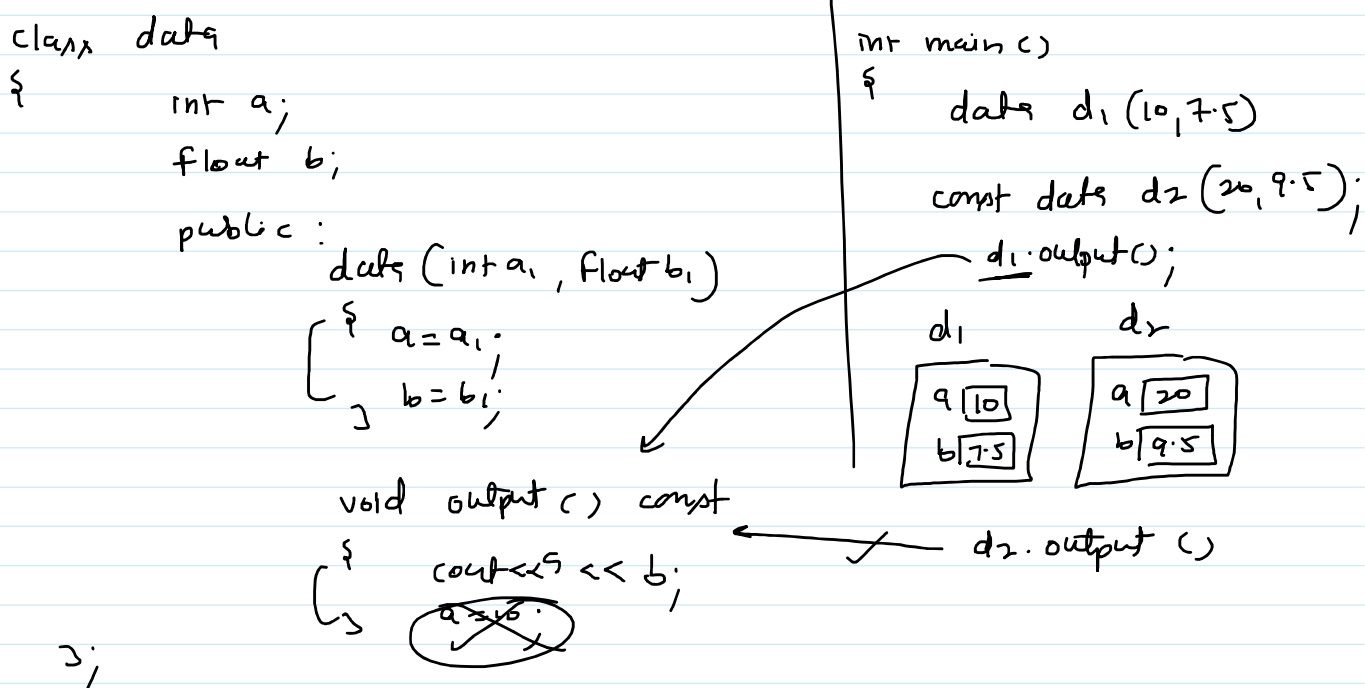 class data
{
int a;
float b;
public :
data (int a1 , float b1)
{ a = a1 ;
} b = b1 ;
void output ( ) const
{ cout<<a << b ;
} a = 10 ;
};
int main ( )
{
data d1 (10, 7.5)
const data d2 (20, 9.5) ;
d1.output ( ) ;
d1 d2
a 10 a 20
b 7.5 b 9.5
d2.output ( )